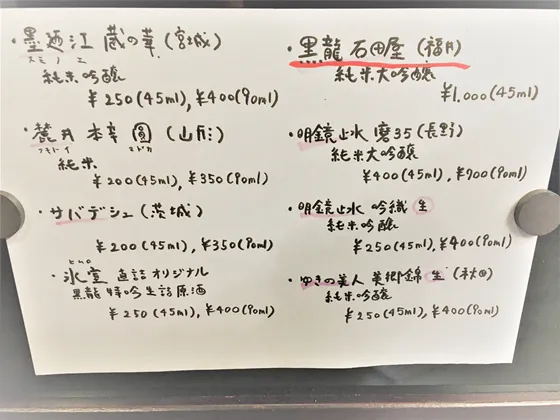 ・墨廼江 蔵の華 (宮城)
スミノエ
純米吟醸
¥250(45ml), ¥400(90ml)
・麓井 本辛 圓 (山形)
フモトイ マドカ
純米
¥200(45ml), ¥350(90ml)
・サバデシュ (茨城)
¥200(45ml), ¥350(90ml)
・氷室 直詰オリジナル
ヒムロ
黒龍 特吟生詰原酒
¥250(45ml), ¥400(90ml)
・黒龍 石田屋 (福井)
純米大吟醸
¥1.000(45ml)
・明鏡止水 磨35 (長野)
純米大吟醸
¥400(45ml), ¥700(90ml)
・明鏡止水 吟織 生
純米吟醸
¥250(45ml), ¥400(90ml)
・ゆきの美人 美郷錦 生 (秋田)
純米吟醸
¥250(45ml), ¥400(90ml)